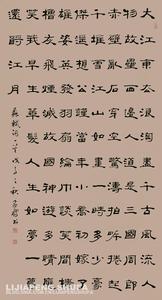 大江東去浪淘盡千古風流人物
故壘西邊人道是三國周郎
赤壁亂石穿空驚濤拍岸捲起
千堆雪江山如畫一時多少豪
傑遙想公瑾當年小喬初嫁了
雄姿英發羽扇綸巾談笑間
檣櫓灰飛煙滅故國神遊多情應
笑我早生華髮人生如夢一尊
還酹江月
LIJIAPENG SHUFA